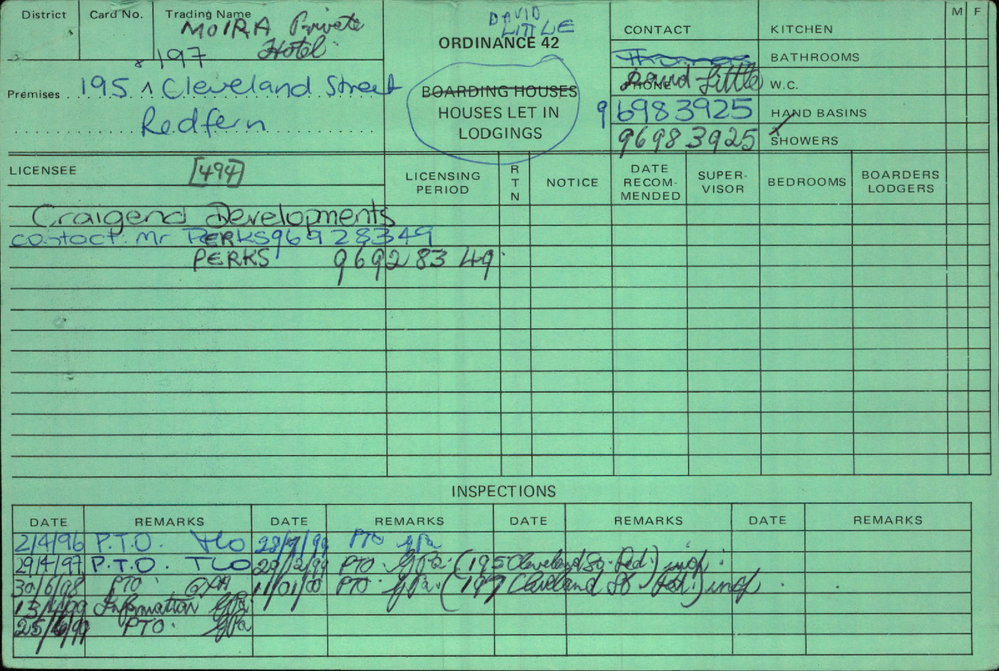 District Card No. Trading Name MOIRA Private Hotel
Premises 195 & 197 Cleveland Street
Redfern
DAVID LITTLE
ORDINANCE 42
BOARDING HOUSES
HOUSES LET IN
LODGINGS
CONTACT
PHONE David Little
96983925
96983925
KITCHEN
BATHROOMS
W.C.
HAND BASINS
SHOWERS
M F
LICENSEE [494]
LICENSING PERIOD
RTN
NOTICE
DATE RECOM-MENDED
SUPER-VISOR
BEDROOMS
BOARDERS LODGERS
Craigend Developments
contact: Mr PERKS 96928349
PERKS 96928349
INSPECTIONS
DATE REMARKS DATE REMARKS DATE REMARKS DATE REMARKS
2/4/96 P.T.O. TLO PTO
29/4/97 P.T.O. TLO PTO (195 Cleveland St. Red.) insp.
30/6/98 PTO 11/01/00 PTO (197 Cleveland St Red.) insp
Information
PTO.